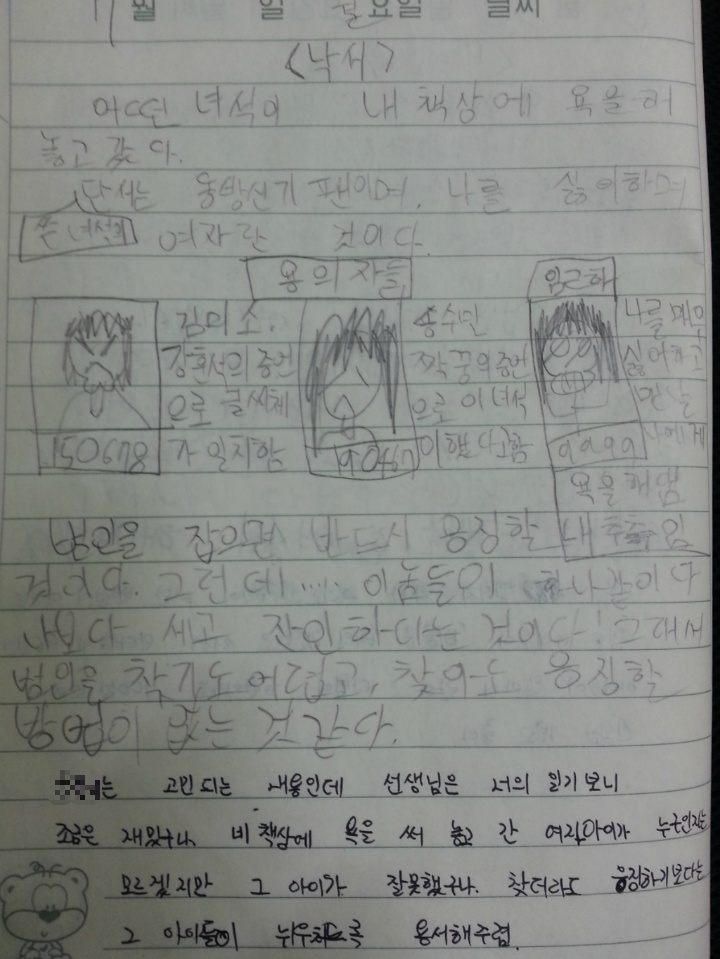 월 일 월요일 날씨
<낙서>
어떤 녀석이 내 책상에 욕을 해
놓고 갔다.
단서는 동방신기 팬이며, 나를 싫어하며
쓴 녀석의 여자란 것이다.
용의자들
임근하
김미소.
강환석의 증언
으로 글씨체
가 일치함
150678
송수민
짝꿍의 증언
으로 이 녀석
이 했다고함
나를 매우
싫어하고
맨날
나에게
9999
욕을 해댐
내 추측임
범인을 잡으면 반드시 응징할
것이다. 그런데..... 이놈들이 하나같이 다
나보다 세고 잔인하다는 것이다! 그래서
범인을 찾기도 어렵고, 찾아도 응징할
방법이 없는 것 같다.
는 고민되는 내용인데 선생님은 너의 일기 보니
조금은 재밌구나. 네 책상에 욕을 써 놓고 간 여자아이가 누군인지는
모르겠지만 그 아이가 잘못했구나. 찾더라도 응징하기보다는
그 아이들이 뉘우치도록 용서해주렴.